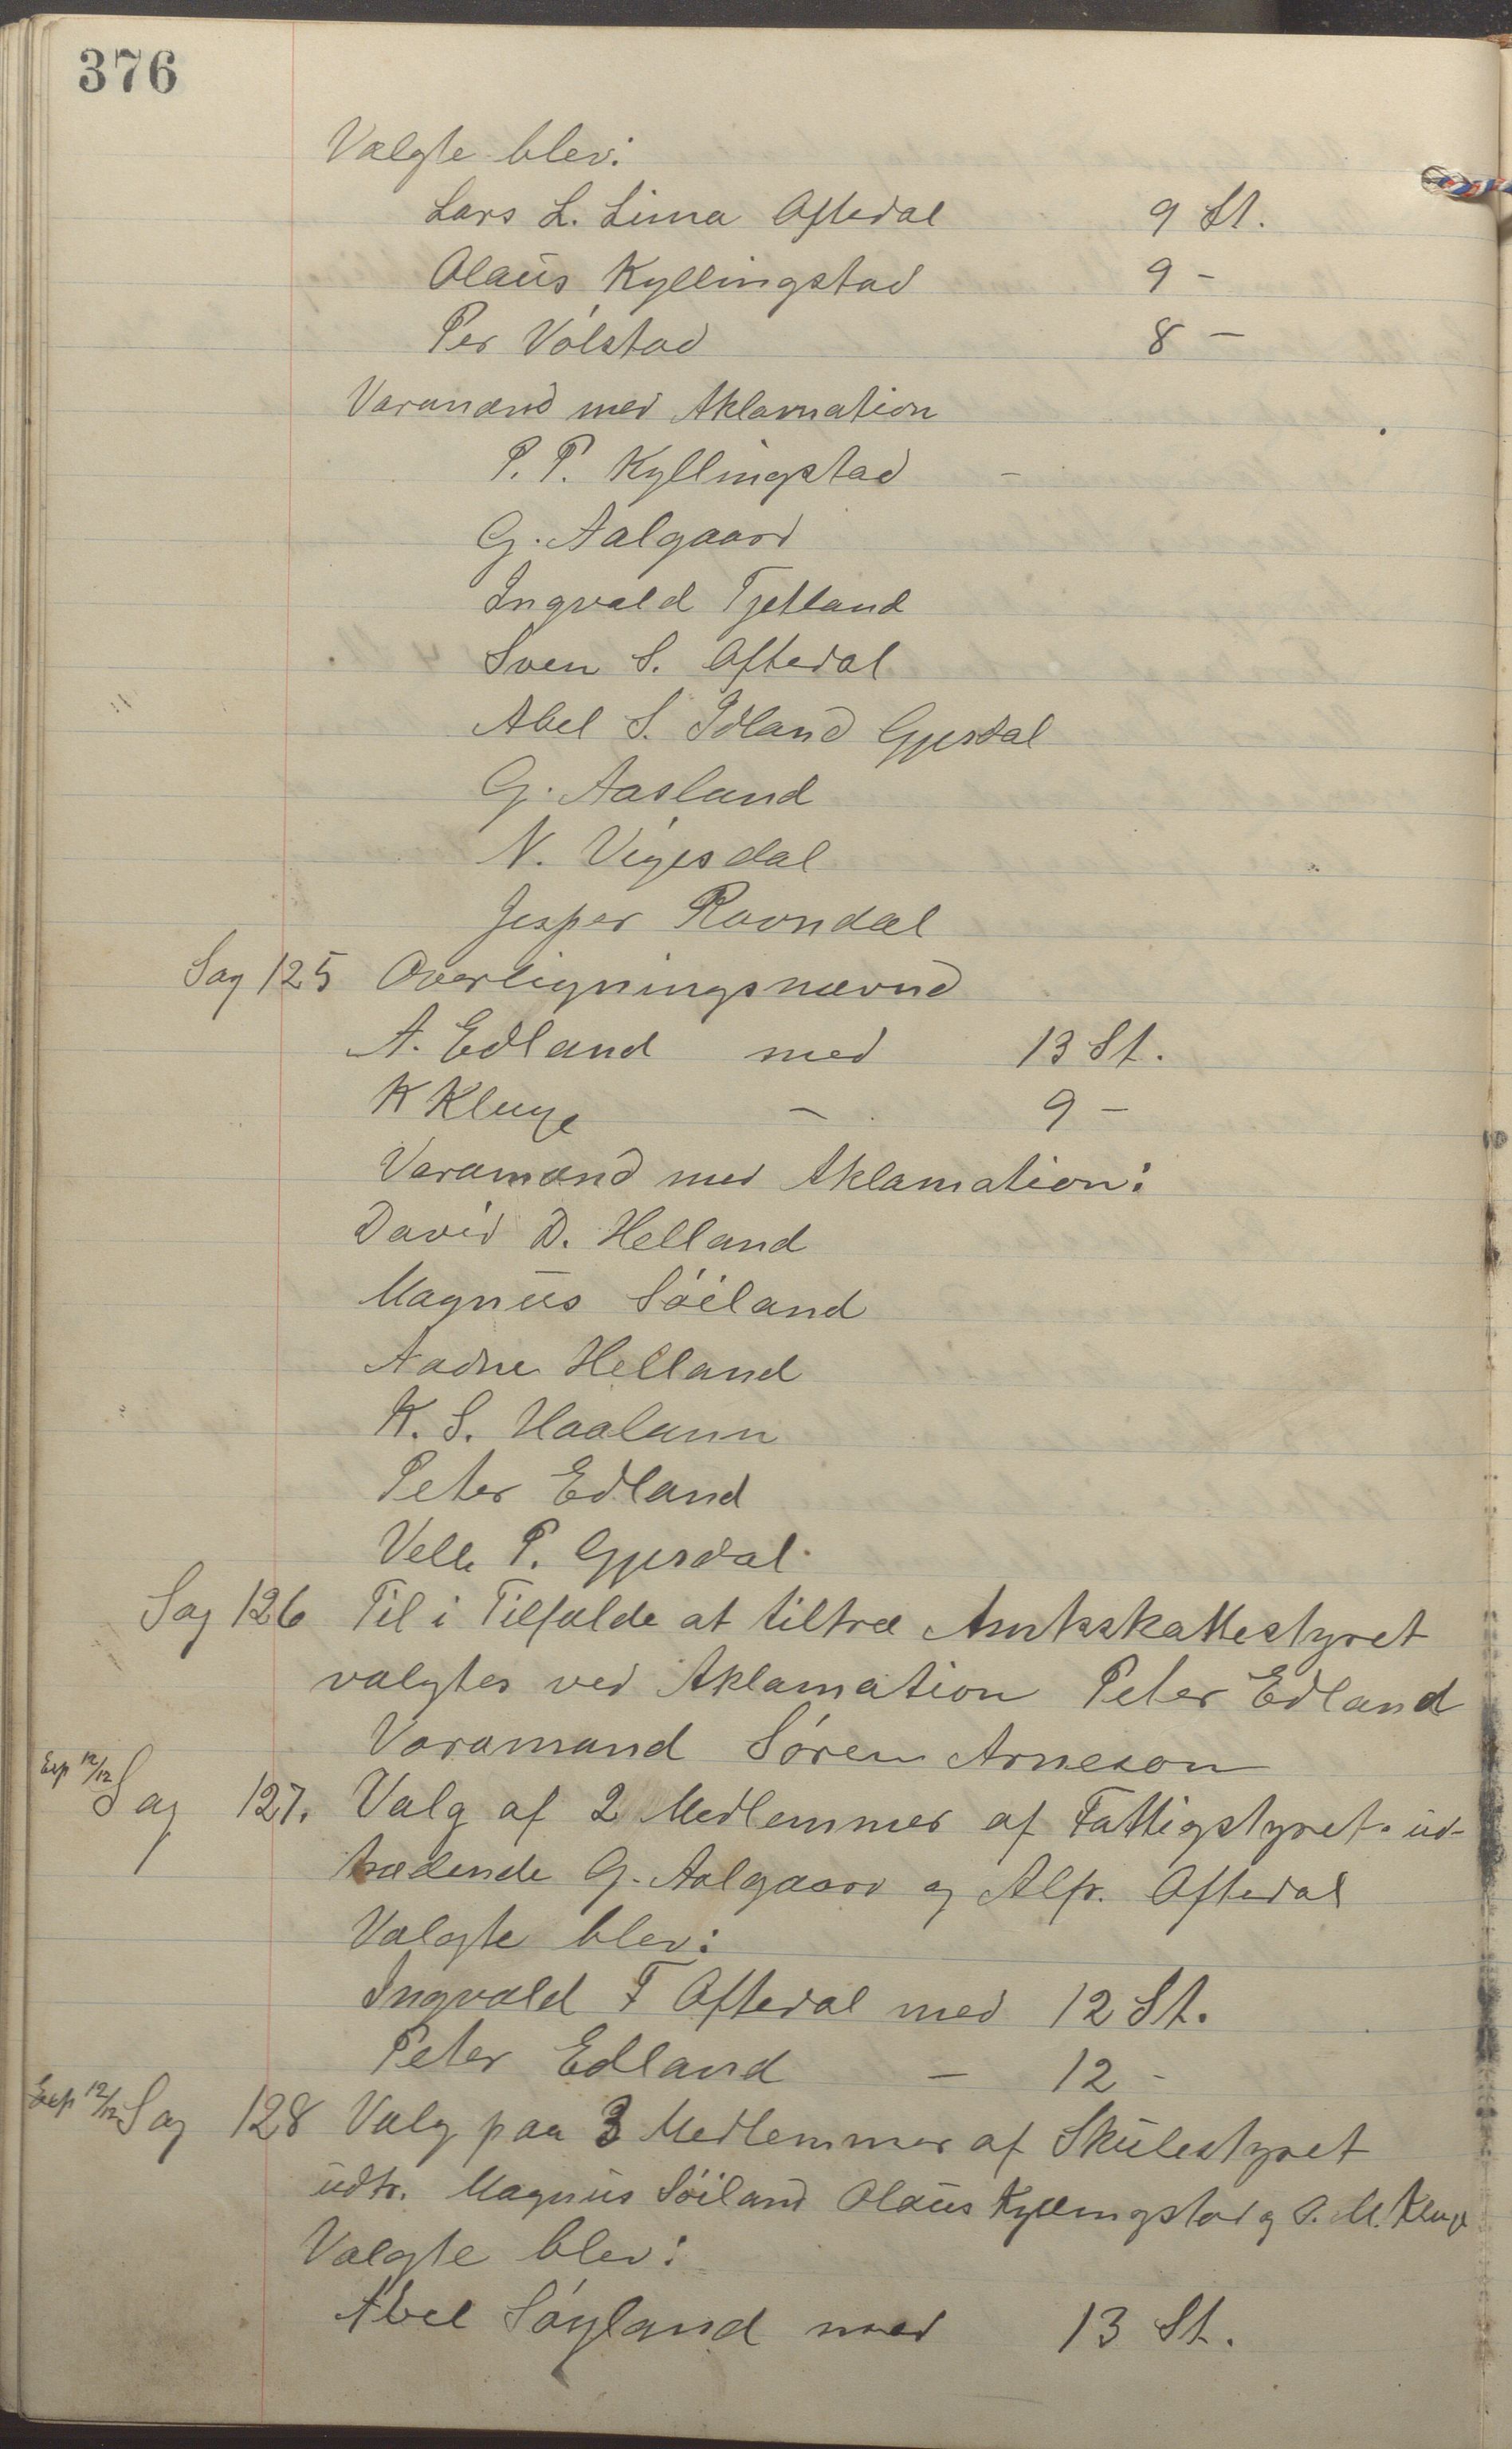 376
Valgte blev:
Lars L. Lima Oftedal 9 St.
Olaus Kyllingstad 9 -
Per Vølstad 8 -
Varamænd med Aklamation
P. P. Kyllingstad -
G. Aalgaard
Ingvald Tjetland
Sven S. Oftedal
Abel S. Idland Gjesdal
G. Aasland
N. Vigesdal
Jesper Ravndal
Sag 125 Overligningsnævnd
A. Edland med 13 St.
K Kluge - 9 -
Varamænd med Aklamation:
David D. Helland
Magnus Søiland
Aadne Helland
K. S. Haaland
Peter Edland
Velle P. Gjesdal.
Sag 126 Til i Tilfælde at tiltræ Amtsskattestyret
valgtes ved Aklamation Peter Edland
Varamand Søren Arneson
Exp 12/12 Sag 127. Valg af 2 Medlemmer af Fattigstyret. ud-
trædende G. Aalgaard og Alfr. Oftedal
Valgte blev:
Ingvald T Oftedal med 12 St.
Peter Edland - 12 -
Exp 12/12 Sag 128 Valg paa 3 Medlemmer af Skulestyret
udtr. Magnus Søiland Olaus Kyllingstad og M. Kluge
Valgte blev:
Abel Søyland med 13 St.